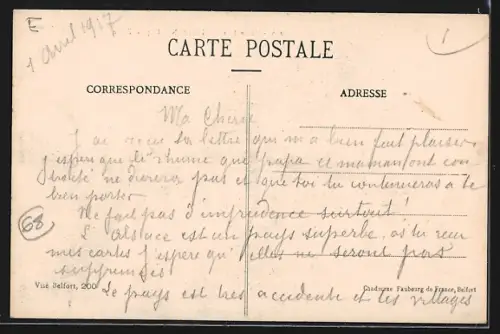 E
1 Avril 1917
1
CARTE POSTALE
CORRESPONDANCE
ADRESSE
Ma Cherie
J'ai recue ta lettre qui m'a bien fait plaisir
j'espere que le rhume que papa et maman ont con
tracté ne durera pas et que toi tu continueras a te
bien porter
Ne fait pas d'imprudence surtout!
L'Alsace est un pays superbe, as tu recu
mes cartes j'espere qu'elles ne seront pas
supprimées
Le pays est tres accidenté et les villages
68
Visé Belfort, 200
Chadourne Faubourg de France, Belfort